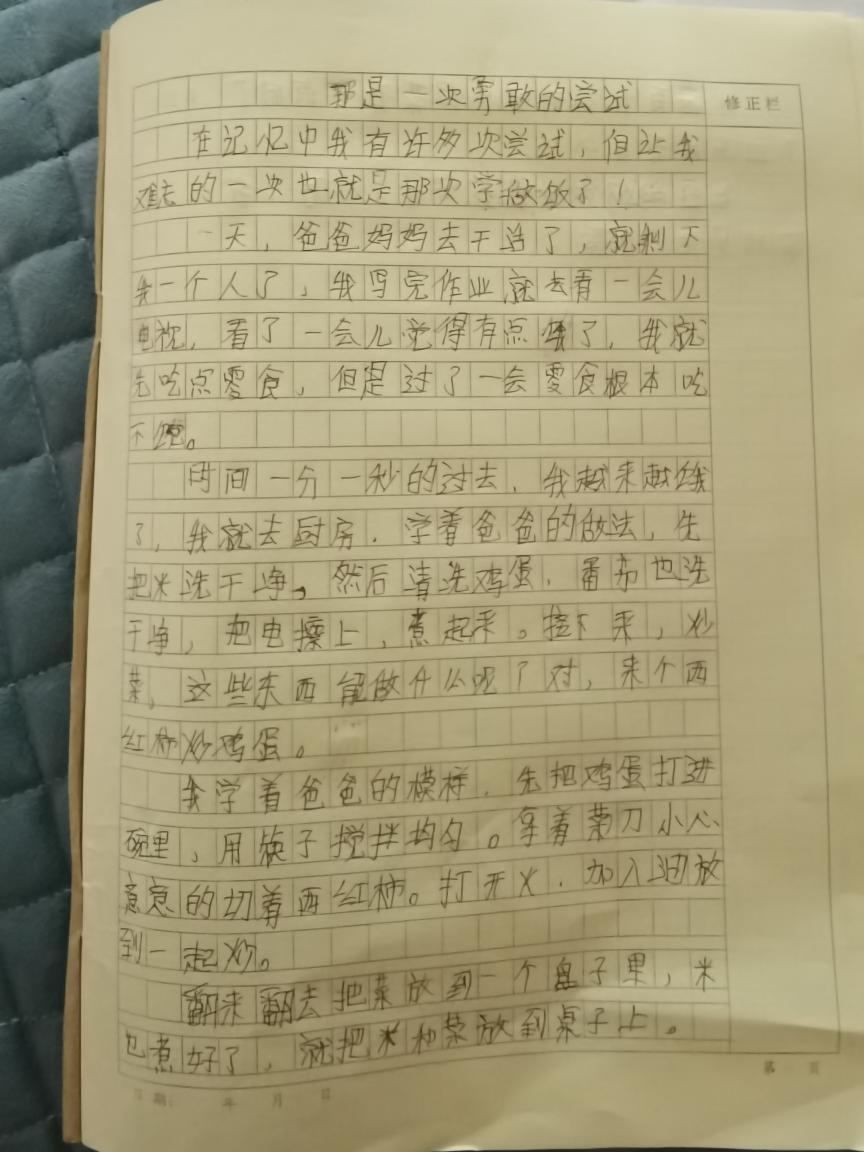 那是一次勇敢的尝试
修正栏
在记忆中我有许多次尝试，但让我
难忘的一次也就是那次学做饭了！
一天，爸爸妈妈去干活了，就剩下
我一个人了，我写完作业就去看一会儿
电视，看了一会儿觉得有点饿了，我就
先吃点零食，但是过了一会零食根本吃
不饱。
时间一分一秒的过去，我越来越饿
了，我就去厨房，学着爸爸的做法，先
把米洗干净。然后清洗鸡蛋，番茄也洗
干净，把电插上，煮起来。接下来，炒
菜，这些东西能做什么呢？对，来个西
红柿炒鸡蛋。
我学着爸爸的模样，先把鸡蛋打进
碗里，用筷子搅拌均匀。拿着菜刀小心
意意的切着西红柿。打开火，加入油放
到一起炒。
翻来翻去把菜放到一个盘子里，米
也煮好了，就把米和菜放到桌子上。
第 页
日期： 年 月 日